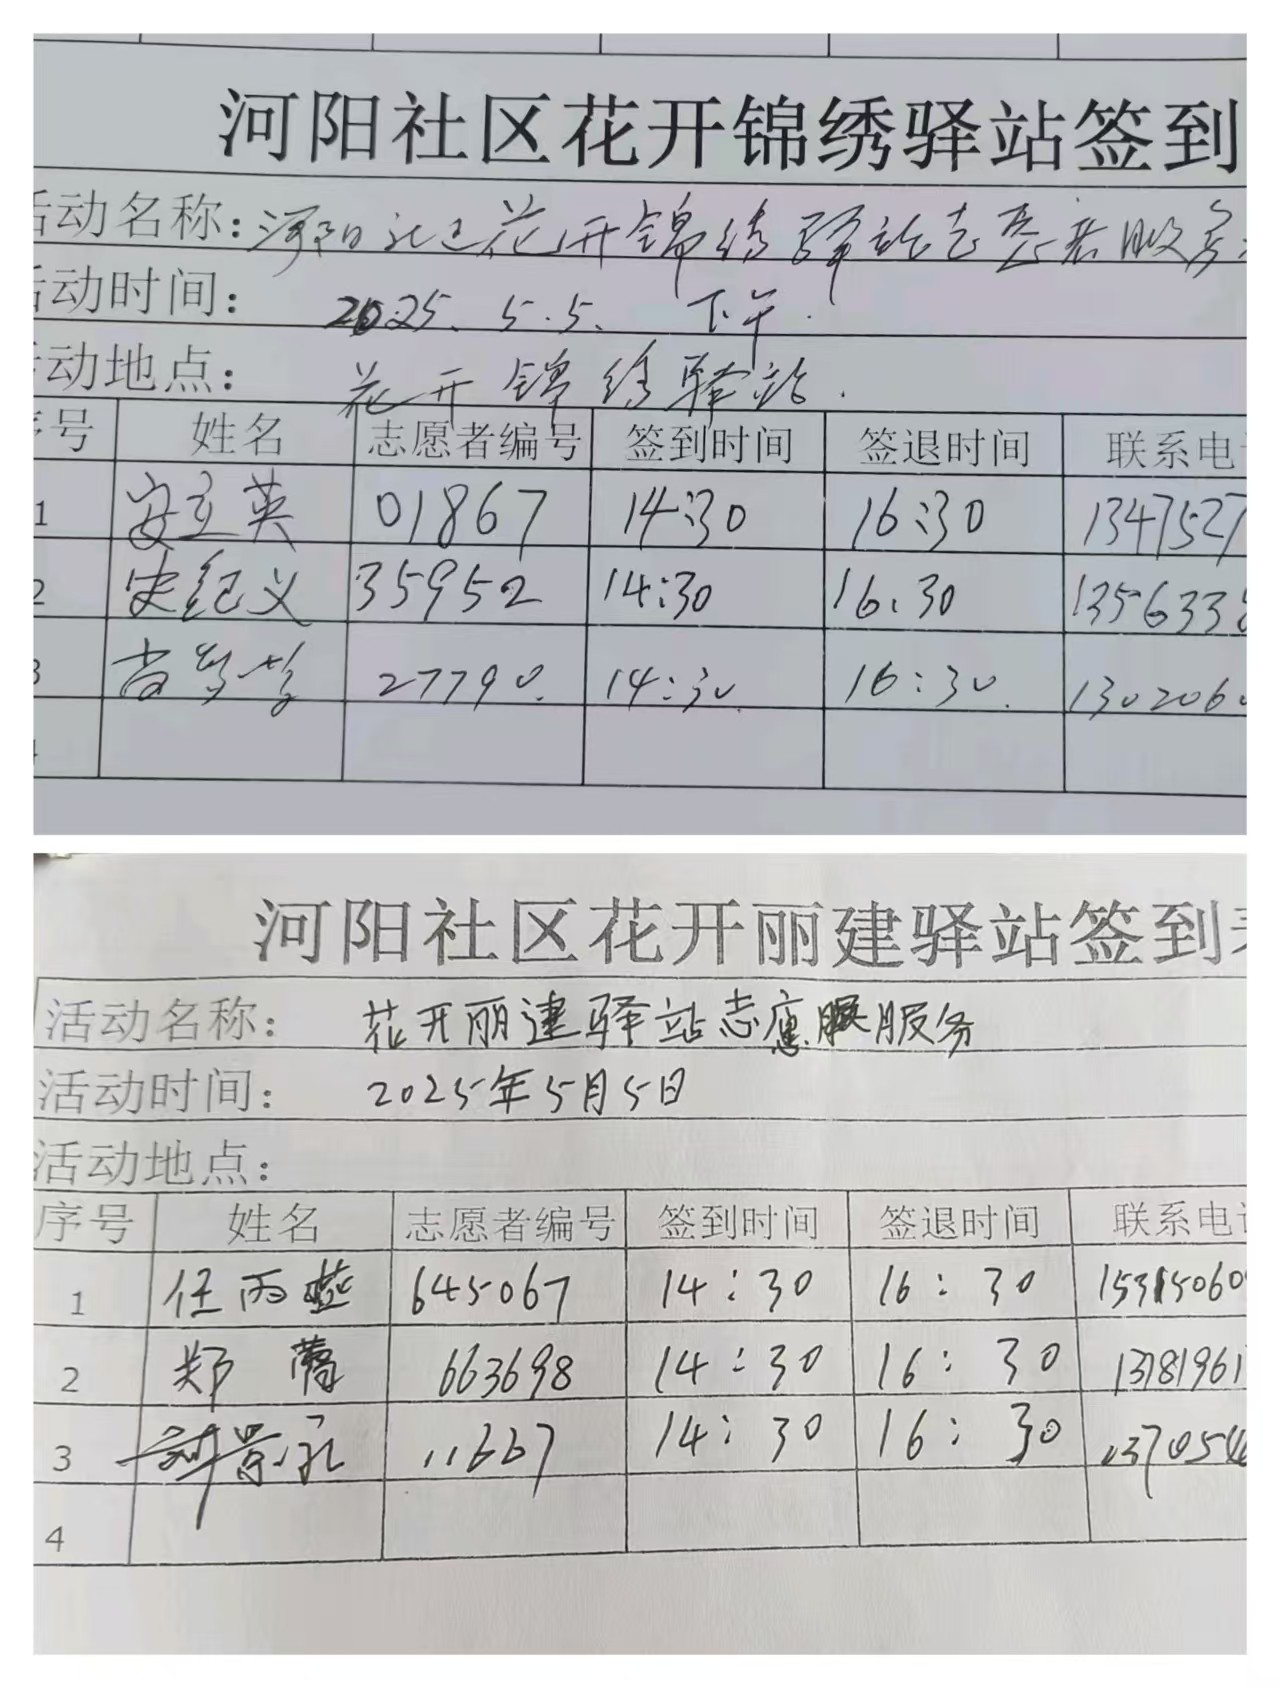 河阳社区花开锦绣驿站签到
活动名称：河阳社区花开锦绣驿站志愿者服务
活动时间： 2025.5.5. 下午.
活动地点： 花开锦绣驿站.
序号 姓名 志愿者编号 签到时间 签退时间 联系电话
1 安立英 01867 14:30 16:30 1347527
2 史纪义 35952 14:30 16:30 1356338
3 27790. 14:30. 16:30. 1302060
4
河阳社区花开丽建驿站签到表
活动名称： 花开丽建驿站志愿服务
活动时间： 2025年5月5日
活动地点：
序号 姓名 志愿者编号 签到时间 签退时间 联系电话
1 任丙 645067 14:30 16:30 15315060
2 郑 663698 14:30 16:30 13181961
3 刘景孔 11667 14:30 16:30 1370546
4